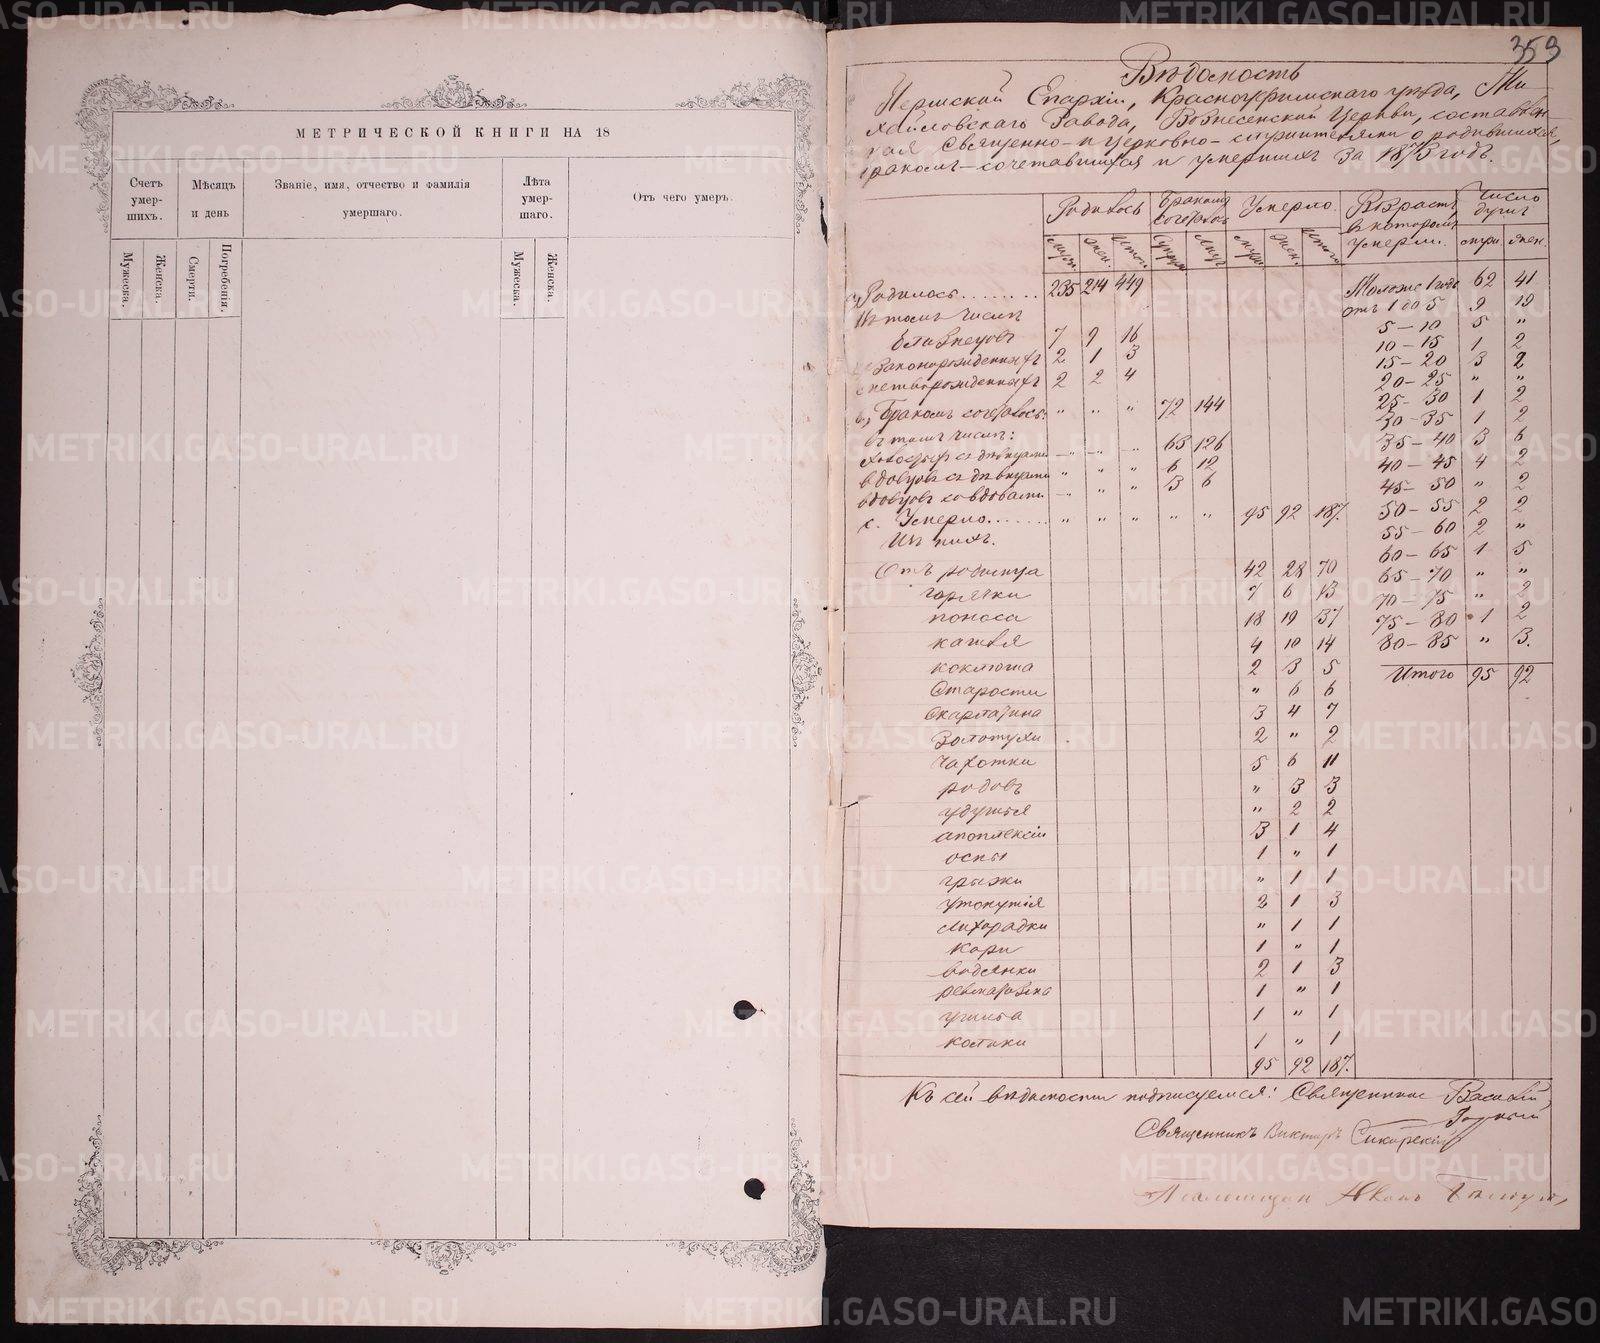 МЕТРИЧЕСКОЙ КНИГИ НА 18
Счетъ умер- шихъ.
Мѣсяцъ и день
Званіе, имя, отчество и фамилія умершаго.
Лѣта умер- шаго.
Отъ чего умеръ.
Мужеска.
Женска.
Смерти.
Погребенія.
Мужеска.
Женска.
359
Вѣдомость
Пермской Епархіи, Красноуфимскаго уѣзда, Ми
хайловскаго Завода, Вознесенской Церкви, составлен-
ная Священно- и церковно-служителями о родившихся,
бракомъ-сочетавшихся и умершихъ за 1873 годъ.
Родилось Бракомъ сочеталось Умерло. Возрастъ, въ которомъ умерли. Число душъ
муж. жен. Итог. Супруж. Лицъ муж. жен. Итого муж. жен.
а, Родилось........ 235 214 449
Въ томъ числѣ
Близнецовъ 7 9 16
Законорожденныхъ 2 1 3
4
в, Бракомъ сочеталось: " " " 72 144
въ томъ числѣ:
холостыхъ съ дѣвицами " " " 63 126
вдовцовъ съ дѣвицами " " " 6 12
вдовцовъ со вдовами " " " 3 6
с. Умерло....... " " " " " 95 92 187.
Изъ нихъ.
Отъ родимца 42 28 70
горячки 7 6 13
поноса 18 19 37
кашля 4 10 14
коклюша 2 3 5
Старости " 6 6
Скарлатина 3 4 7
Золотухи 2 " 2
Чахотки 5 6 11
родовъ " 3 3
удушья " 2 2
апоплексіи 3 1 4
оспы 1 " 1
грыжи " 1 1
утонутія 2 1 3
лихорадки " 1 1
Кори 1 " 1
водянки 2 1 3
ревматизма 1 " 1
ушиба 1 " 1
колики 1 " 1
95 92 187.
Моложе 1 года 62 41
Отъ 1 до 5 9 19
5-10 5 "
10-15 1 2
15-20 3 2
20-25 " "
25-30 1 2
30-35 1 2
35-40 3 6
40-45 4 2
45-50 " 2
50-55 2 2
55-60 2 "
60-65 1 5
65-70 " "
70-75 " 2
75-80 1 2
80-85 " 3.
Итого 95 92
Къ сей вѣдомости подписуемся: Священникъ Василій
Священникъ Викторъ Сикорскій
Псаломщик Иван
METRIKI.GASO-URAL.RU